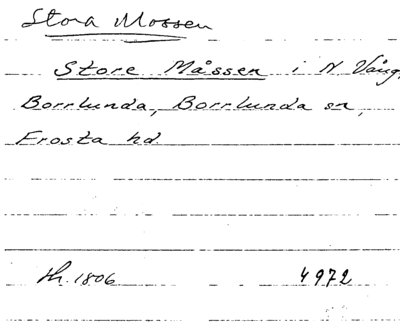 Stora Mossen
Store Måssen i N Vång,
Borrlunda, Borrlunda sn,
Frosta hd.
Sk. 1806 4972